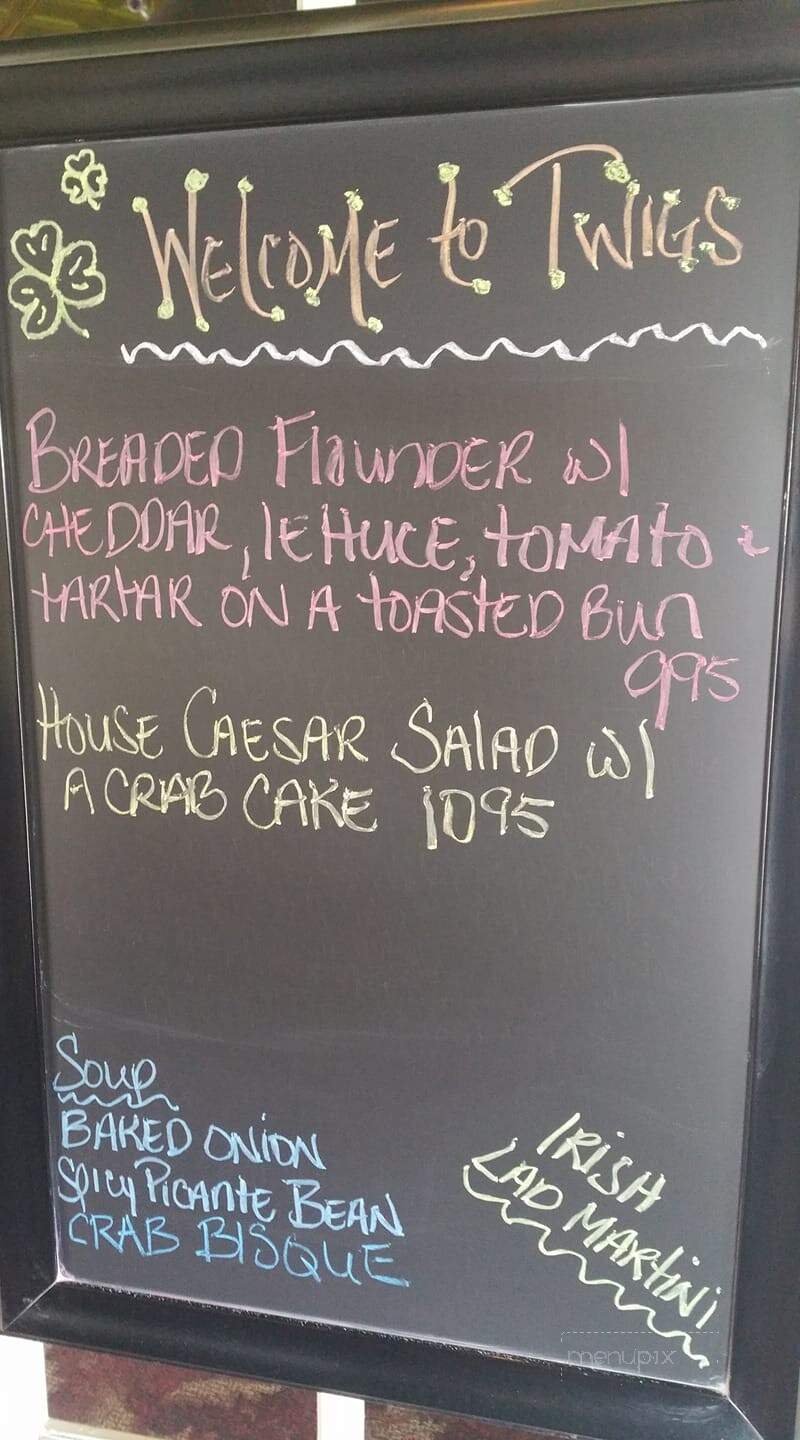 WELCOME to TWIGS
BREADED FlOUNDER w/
CHEDDAR, lEttUCE, tOMAtO &
tARtAR ON A tOASTED BUn
995
HOUSE CAESAR SAlAD w/
A CRAB CAKE 1095
Soup
BAKED ONiON
Spicy Picante BEAN
CRAB BISQUE
IRiSH
LAD MARtiNi
menupix